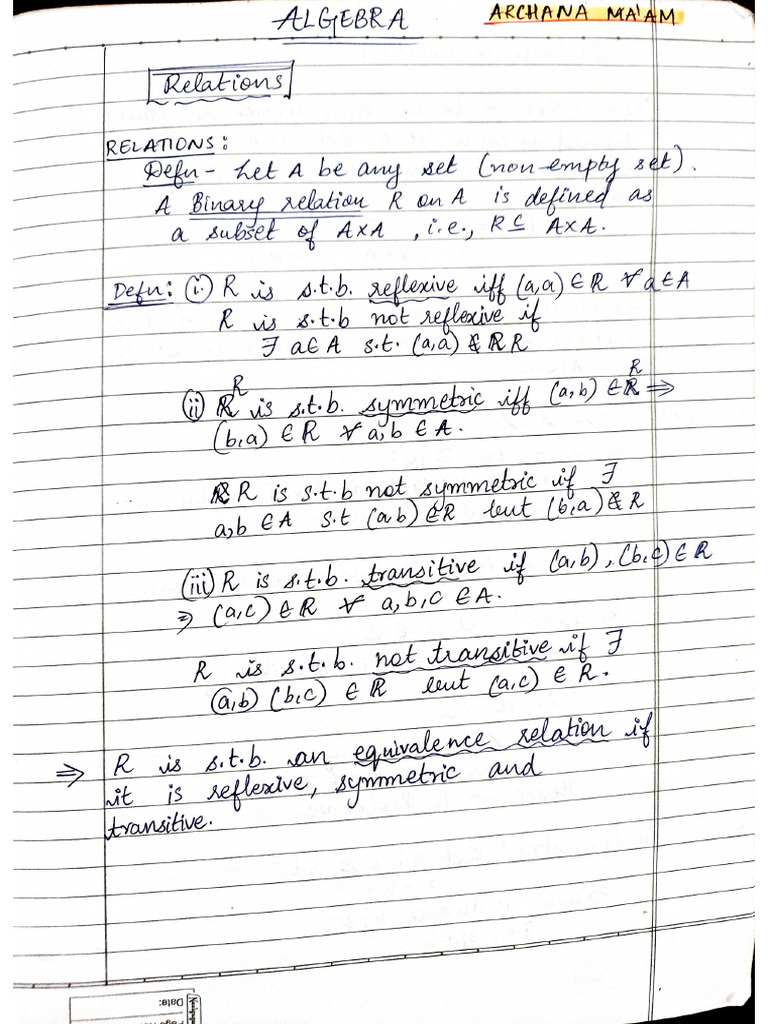 ALGEBRA
ARCHANA MA'AM
Relations
RELATIONS:
Defn - Let A be any set (non-empty set).
A Binary relation R on A is defined as
a subset of A×A , i.e., R ⊆ A×A.
Defn: (i.) R is s.t.b. reflexive iff (a,a) ∈ R ∀ a ∈ A
R is s.t.b not reflexive if
∃ a ∈ A s.t. (a,a) ∉ R R
(ii) R is s.t.b. symmetric iff (a,b) ∈ R ⇒
(b,a) ∈ R ∀ a,b ∈ A.
R is s.t.b not symmetric if ∃
a,b ∈ A s.t (a,b) ∈ R but (b,a) ∉ R
(iii) R is s.t.b. transitive if (a,b), (b,c) ∈ R
⇒ (a,c) ∈ R ∀ a,b,c ∈ A.
R is s.t.b. not transitive if ∃
(a,b) (b,c) ∈ R but (a,c) ∈ R.
⇒ R is s.t.b. an equivalence relation if
it is reflexive, symmetric and
transitive.
Date: